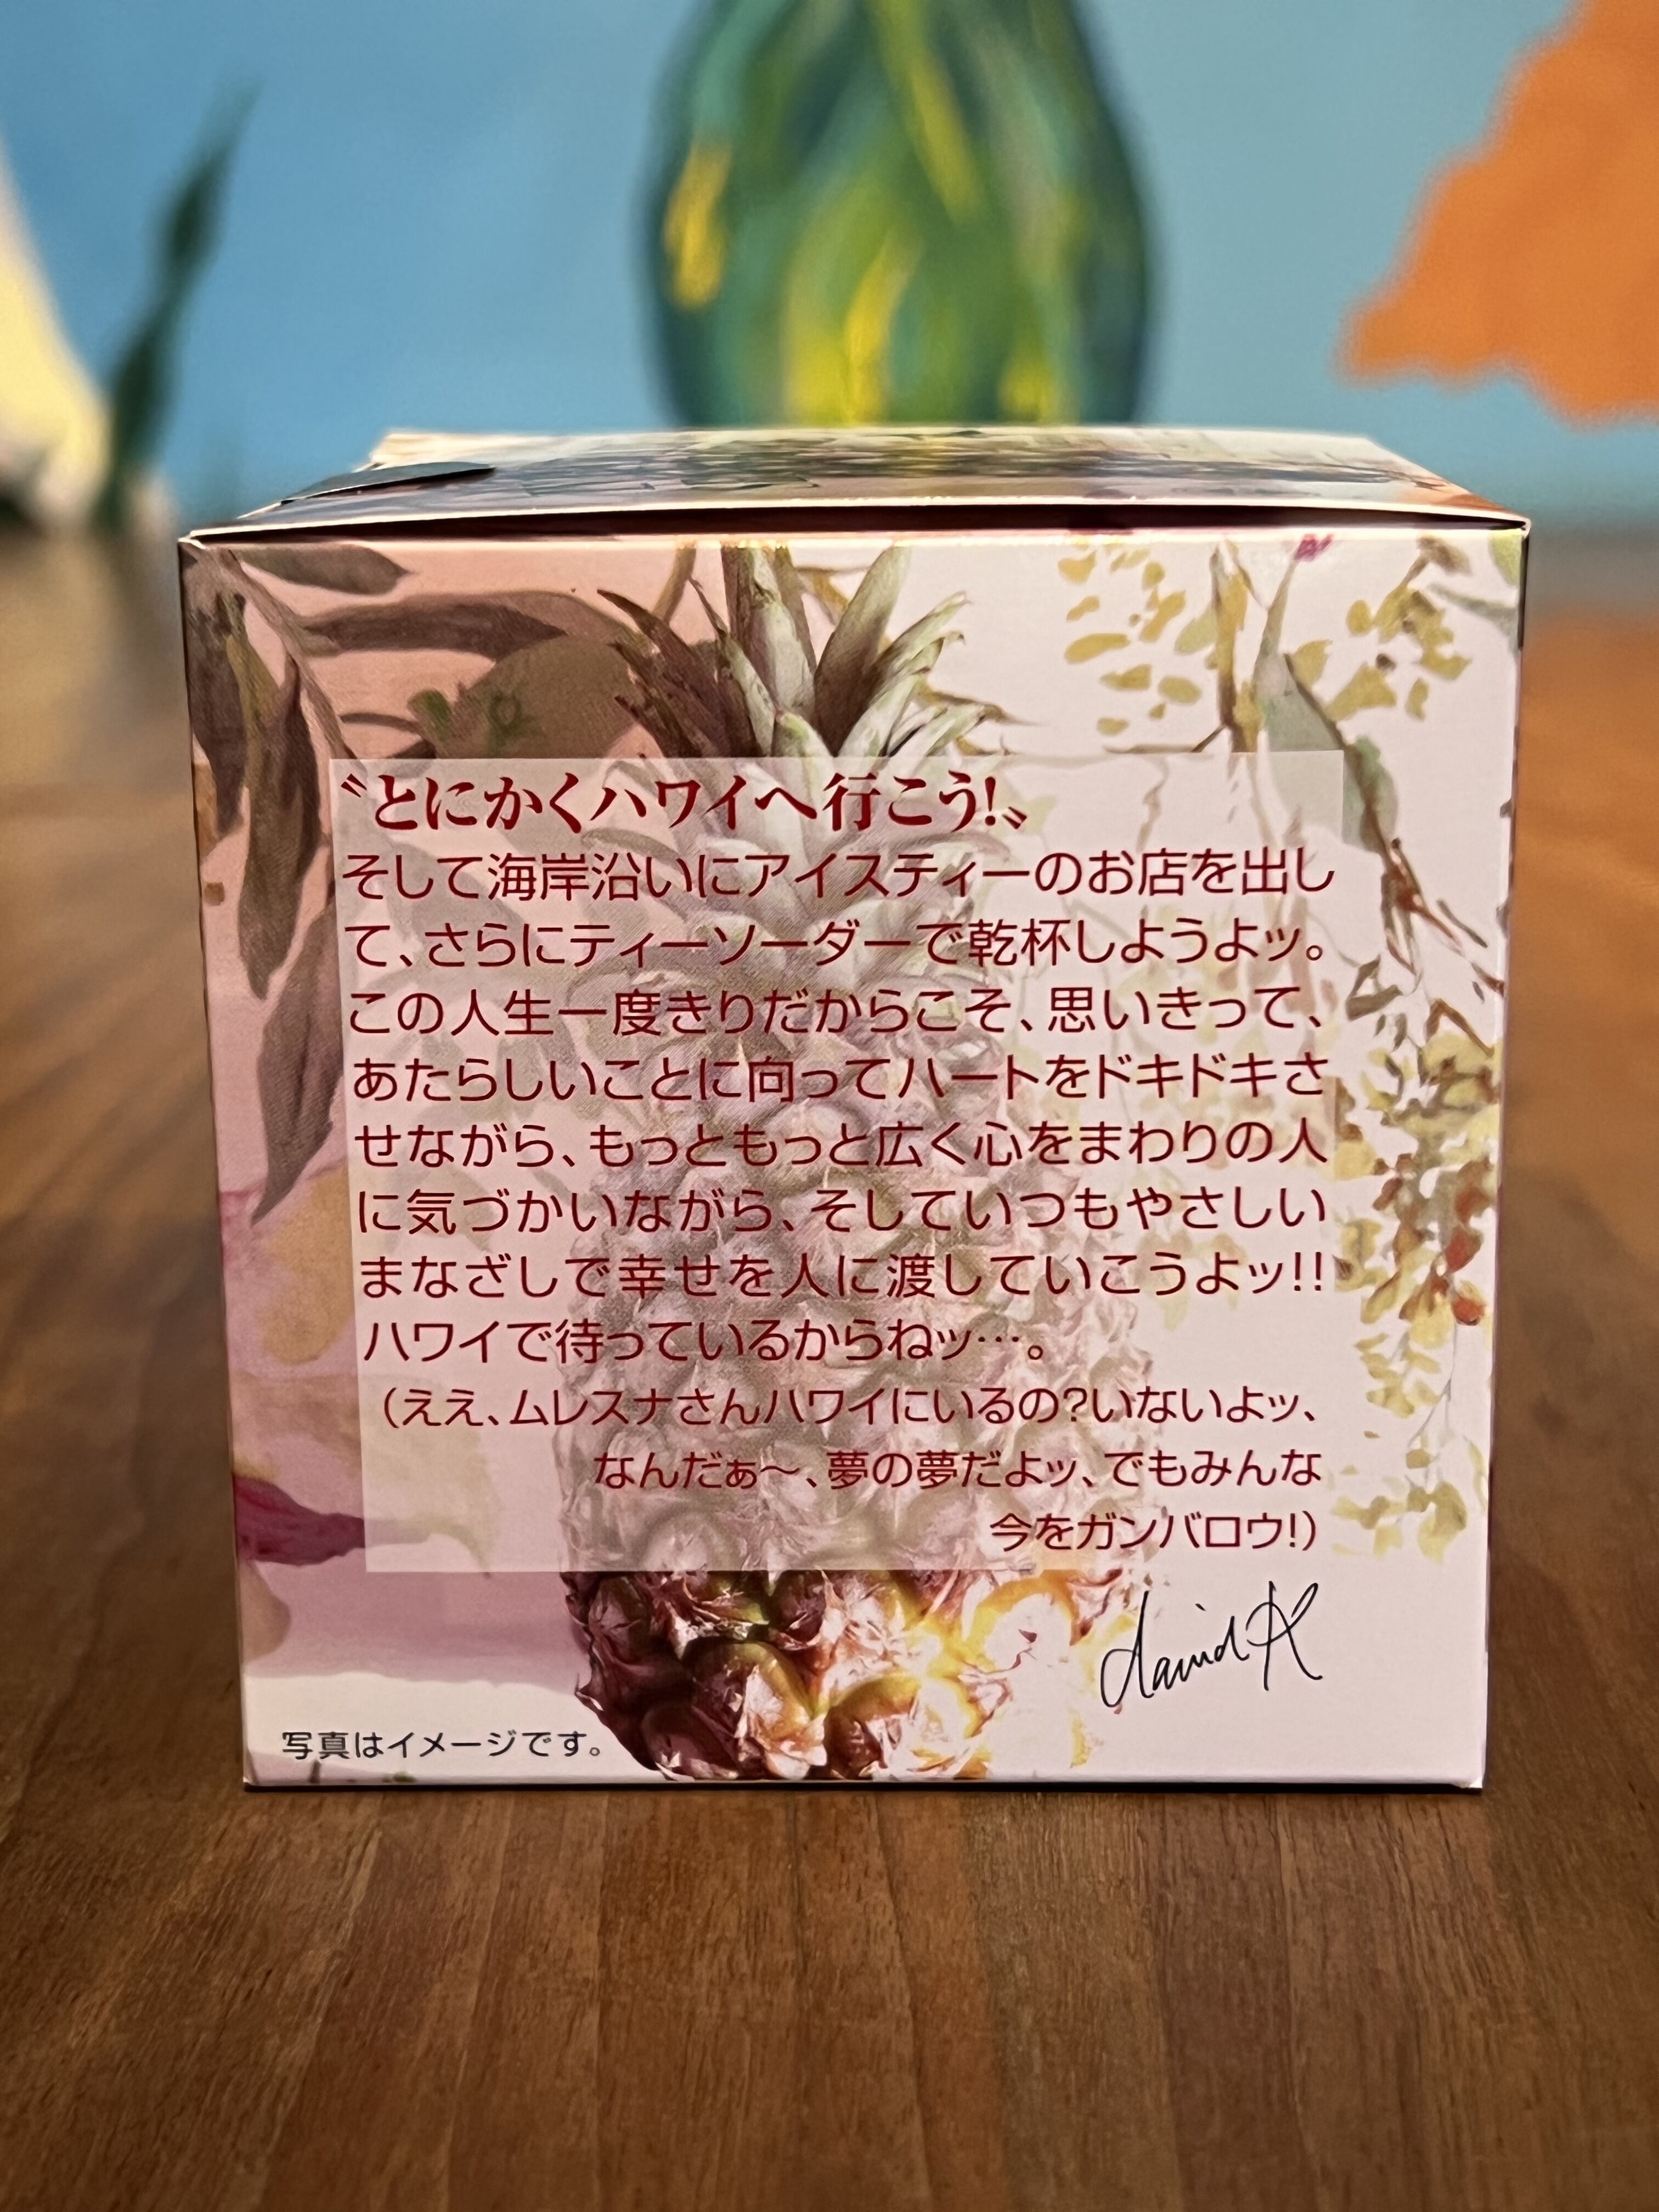 〝とにかくハワイへ行こう!〟
そして海岸沿いにアイスティーのお店を出し
て、さらにティーソーダーで乾杯しようよッ。
この人生一度きりだからこそ、思いきって、
あたらしいことに向ってハートをドキドキさ
せながら、もっともっと広く心をまわりの人
に気づかいながら、そしていつもやさしい
まなざしで幸せを人に渡していこうよッ!!
ハワイで待っているからねッ…。
(ええ、ムレスナさんハワイにいるの?いないよッ、
なんだぁ〜、夢の夢だよッ、でもみんな
今をガンバロウ!)
david K
写真はイメージです。